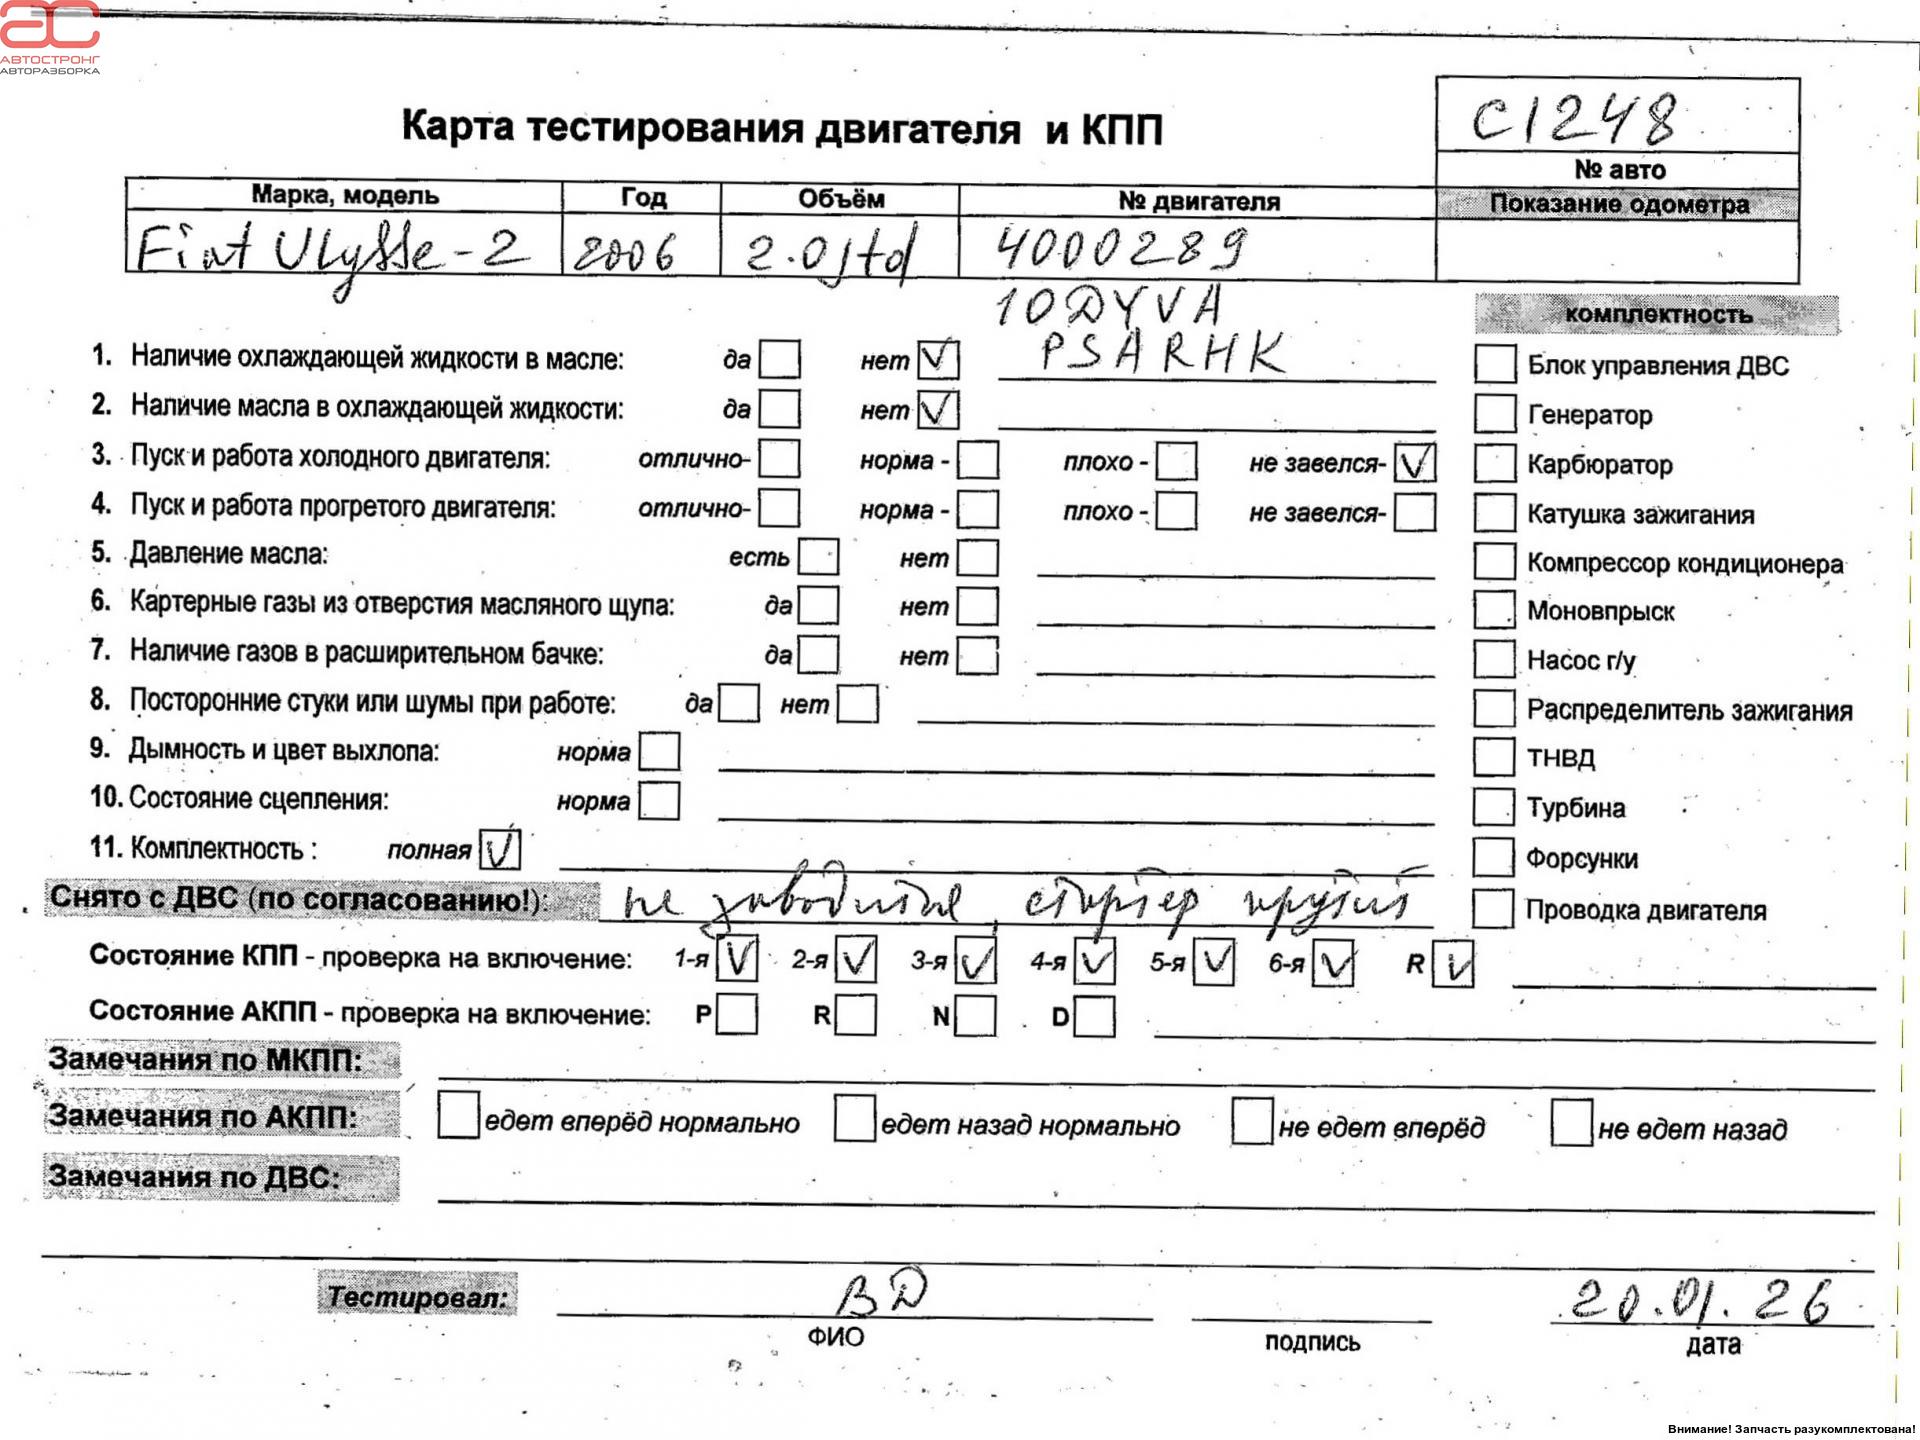 АВТОСТРОНГ
АВТОРАЗБОРКА
Карта тестирования двигателя и КПП
C1248
№ авто
Марка, модель Год Объём № двигателя Показание одометра
Fiat Ulysse-2 2006 2.0jtd 4000289
10DYVA
PSARHK
комплектность
1. Наличие охлаждающей жидкости в масле: да нет V
Блок управления ДВС
2. Наличие масла в охлаждающей жидкости: да нет V
Генератор
3. Пуск и работа холодного двигателя: отлично- норма - плохо - не завелся- V
Карбюратор
4. Пуск и работа прогретого двигателя: отлично- норма - плохо - не завелся-
Катушка зажигания
5. Давление масла: есть нет
Компрессор кондиционера
6. Картерные газы из отверстия масляного щупа: да нет
Моновпрыск
7. Наличие газов в расширительном бачке: да нет
Насос г/у
8. Посторонние стуки или шумы при работе: да нет
Распределитель зажигания
9. Дымность и цвет выхлопа: норма
ТНВД
10. Состояние сцепления: норма
Турбина
11. Комплектность : полная V
Форсунки
Снято с ДВС (по согласованию!): не заводится, стартер крутит
Проводка двигателя
Состояние КПП - проверка на включение: 1-я V 2-я V 3-я V 4-я V 5-я V 6-я V R V
Состояние АКПП - проверка на включение: P R N D
Замечания по МКПП:
Замечания по АКПП: едет вперёд нормально едет назад нормально не едет вперёд не едет назад
Замечания по ДВС:
Тестировал: ВД 20.01.26
ФИО подпись дата
Внимание! Запчасть разукомплектована!